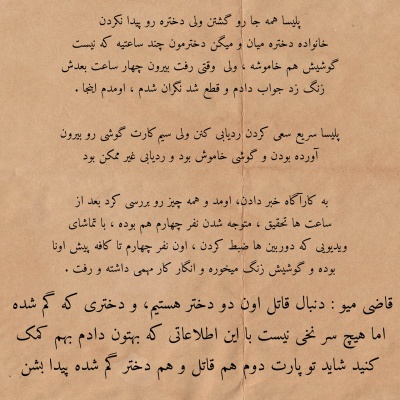 پلیسا همه جا رو گشتن ولی دختره رو پیدا نکردن
خانواده دختره میان و میگن دخترمون چند ساعتیه که نیست
گوشیش هم خاموشه ، ولی وقتی رفت بیرون چهار ساعت بعدش
زنگ زد جواب دادم و قطع شد نگران شدم ، اومدم اینجا .
پلیسا سریع سعی کردن ردیابی کنن ولی سیم کارت گوشی رو بیرون
آورده بودن و گوشی خاموش بود و ردیابی غیر ممکن بود
به کارآگاه خبر دادن، اومد و همه چیز رو بررسی کرد بعد از
ساعت ها تحقیق ، متوجه شدن نفر چهارم هم بوده ، با تماشای
ویدیویی که دوربین ها ضبط کردن ، اون نفر چهارم تا کافه پیش اونا
بوده و گوشیش زنگ میخوره و انگار کار مهمی داشته و رفت .
قاضی میو : دنبال قاتل اون دو دختر هستیم، و دختری که گم شده
اما هیچ سر نخی نیست با این اطلاعاتی که بهتون دادم بهم کمک
کنید شاید تو پارت دوم هم قاتل و هم دختر گم شده پیدا بشن